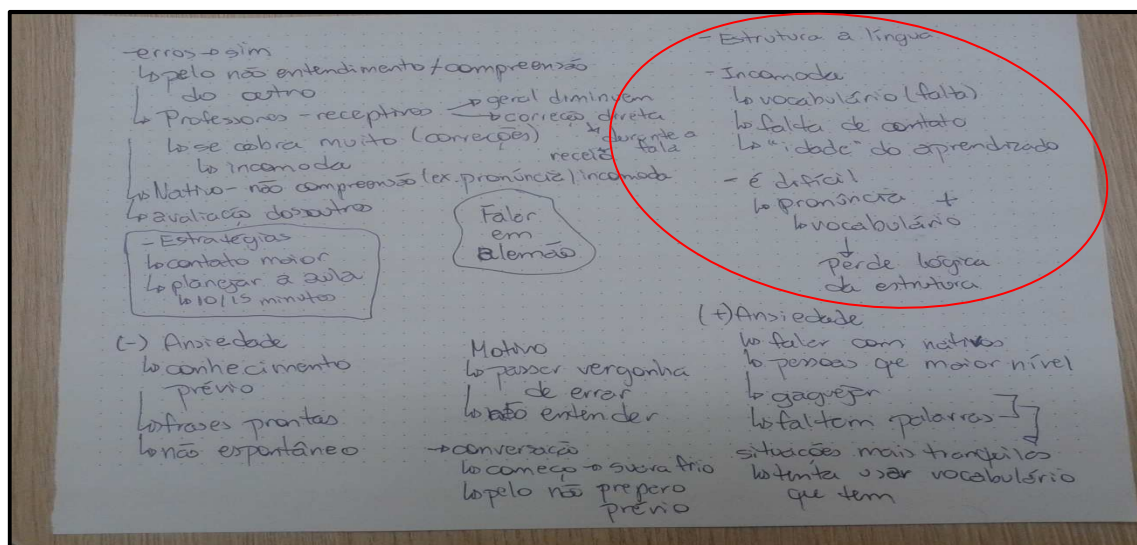 -erros → sim
↳ pelo não entendimento/compreensão
do outro
↳ Professores - receptivos → geral diminuem
→ correção direta
↳ se cobra muito (correções)
↳ durante a
fala
↳ incomoda
receio
↳ Nativo - não compreensão (ex. pronúncia) incomoda
↳ avaliação dos outros
- Estratégias
↳ contato maior
↳ planejar a aula
↳ 10/15 minutos
Falar
em
alemão
- Estrutura a língua
- Incomoda
↳ vocabulário (falta)
↳ falta de contato
↳ "idade" do aprendizado
- é difícil
↳ pronúncia +
↳ vocabulário
↓
perde lógica
da estrutura
(-) Ansiedade
↳ conhecimento
prévio
↳ frases prontas
↳ não espontâneo
Motivo
↳ passar vergonha
de errar
↳ não entender
→ conversação
↳ começo → suora frio
↳ pelo não preparo
prévio
(+) Ansiedade
↳ falar com nativos
↳ pessoas que maior nível
↳ gaguejar
↳ faltam palavras
situações mais tranquilas
↳ tenta usar vocabulário
que tem